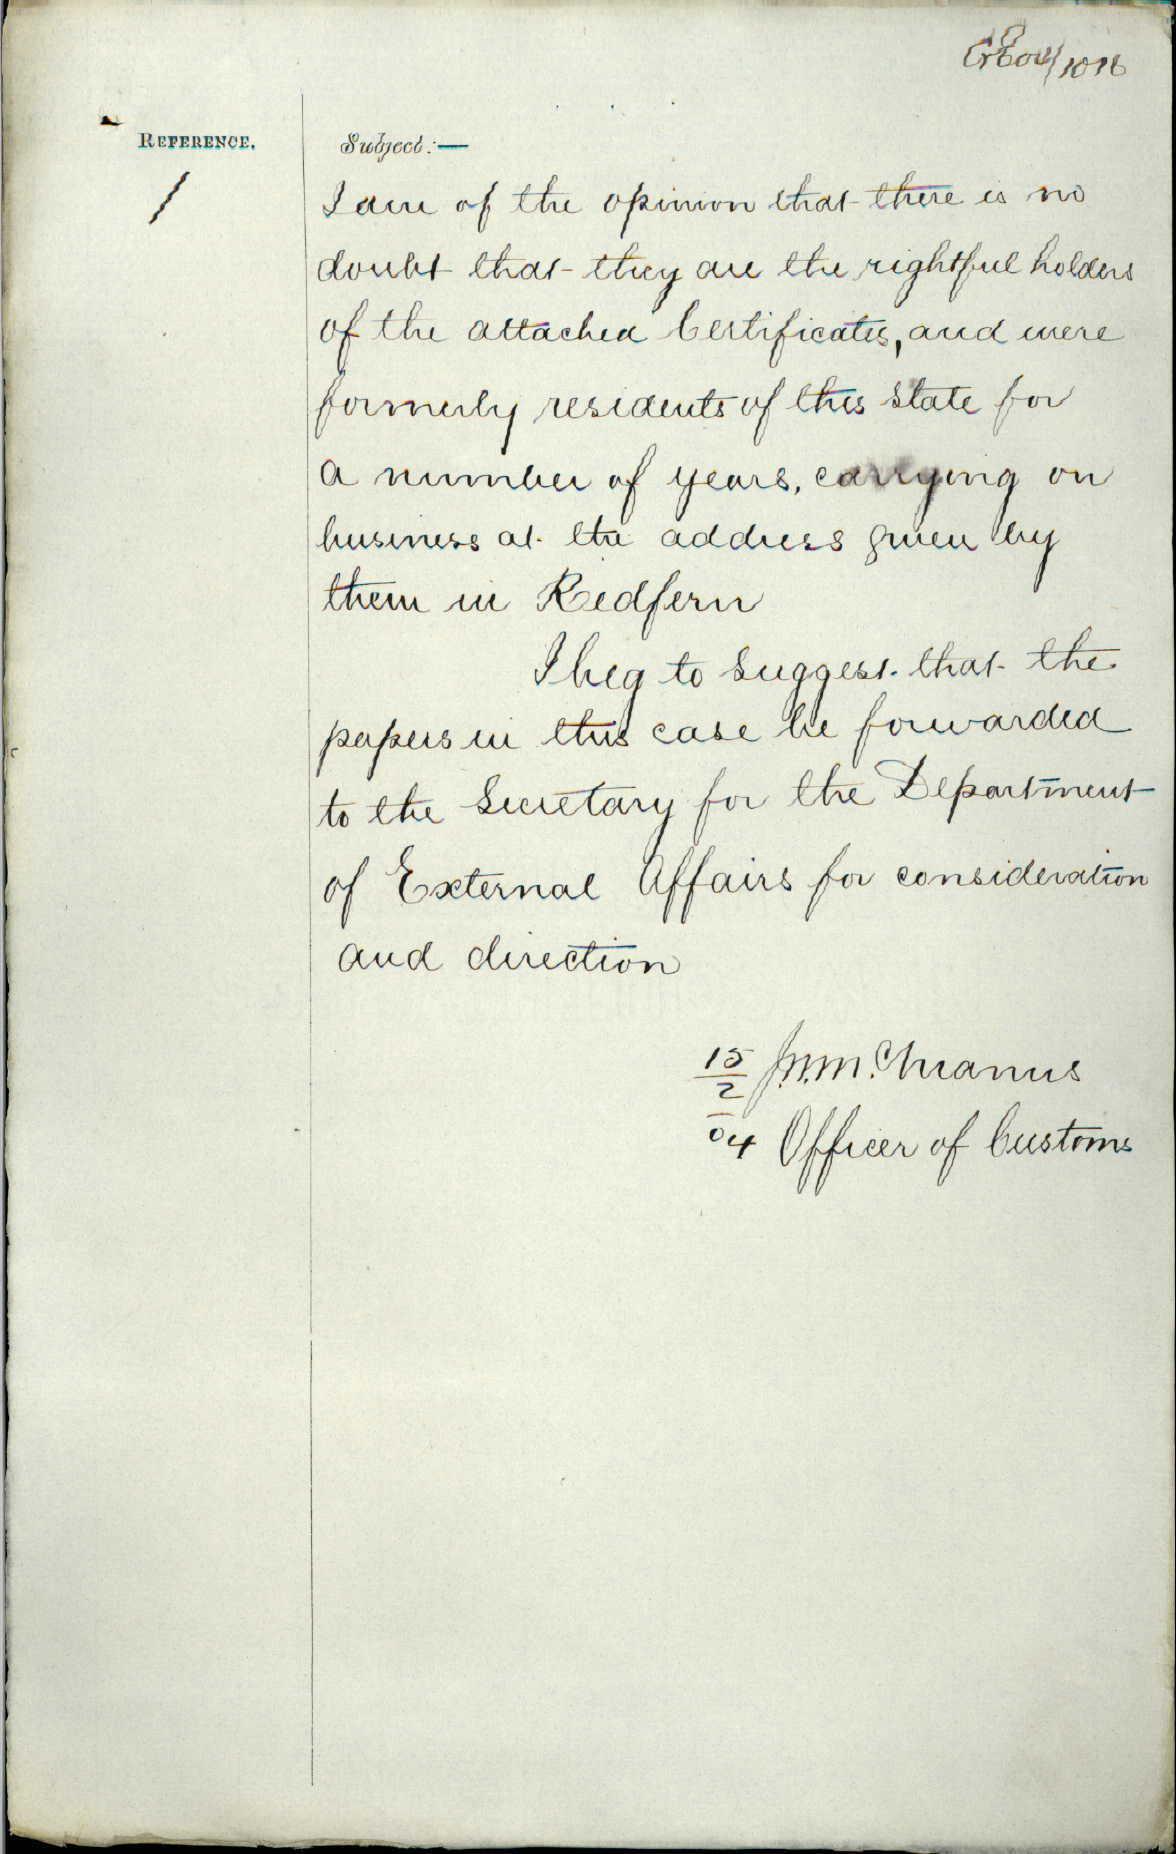 REFERENCE.
Subject:—
I am of the opinion that there is no
doubt that they are the rightful holders
of the attached Certificates, and were
formerly residents of this State for
a number of years, carrying on
business at the address given by
them in Redfern
I beg to suggest that the
papers in this case be forwarded
to the Secretary for the Department
of External Affairs for consideration
and direction
15/2/04 J.W.McManus
Officer of Customs